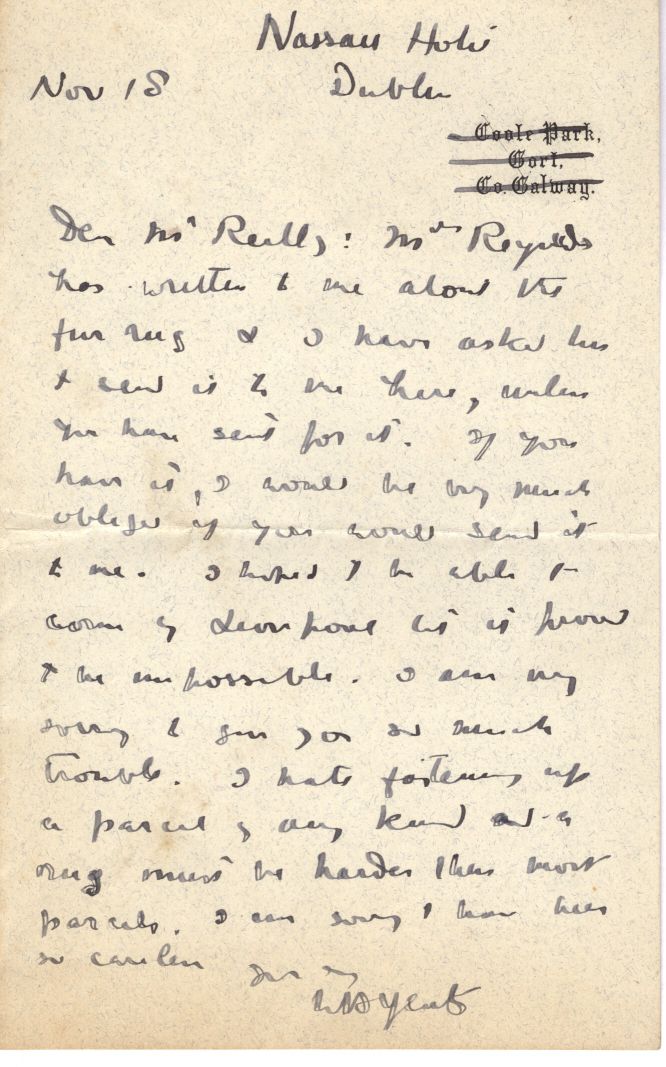 Nassau Hotel
Nov 18 Dublin
Coole Park,
Gort,
Co. Galway.
Dear Mr Reilly: Mrs Reynolds
has written to me about the
fur rug & I have asked her
to send it to me here, unless
you have sent for it. If you
have it, I would be very much
obliged if you would send it
to me. I hoped to be able to
come by Liverpool but it proved
to be impossible. I am very
sorry to give you so much
trouble. I hate fastening up
a parcel of any kind and a
rug must be harder than most
parcels. I am sorry I have been
so careless
Yrs
WB Yeats